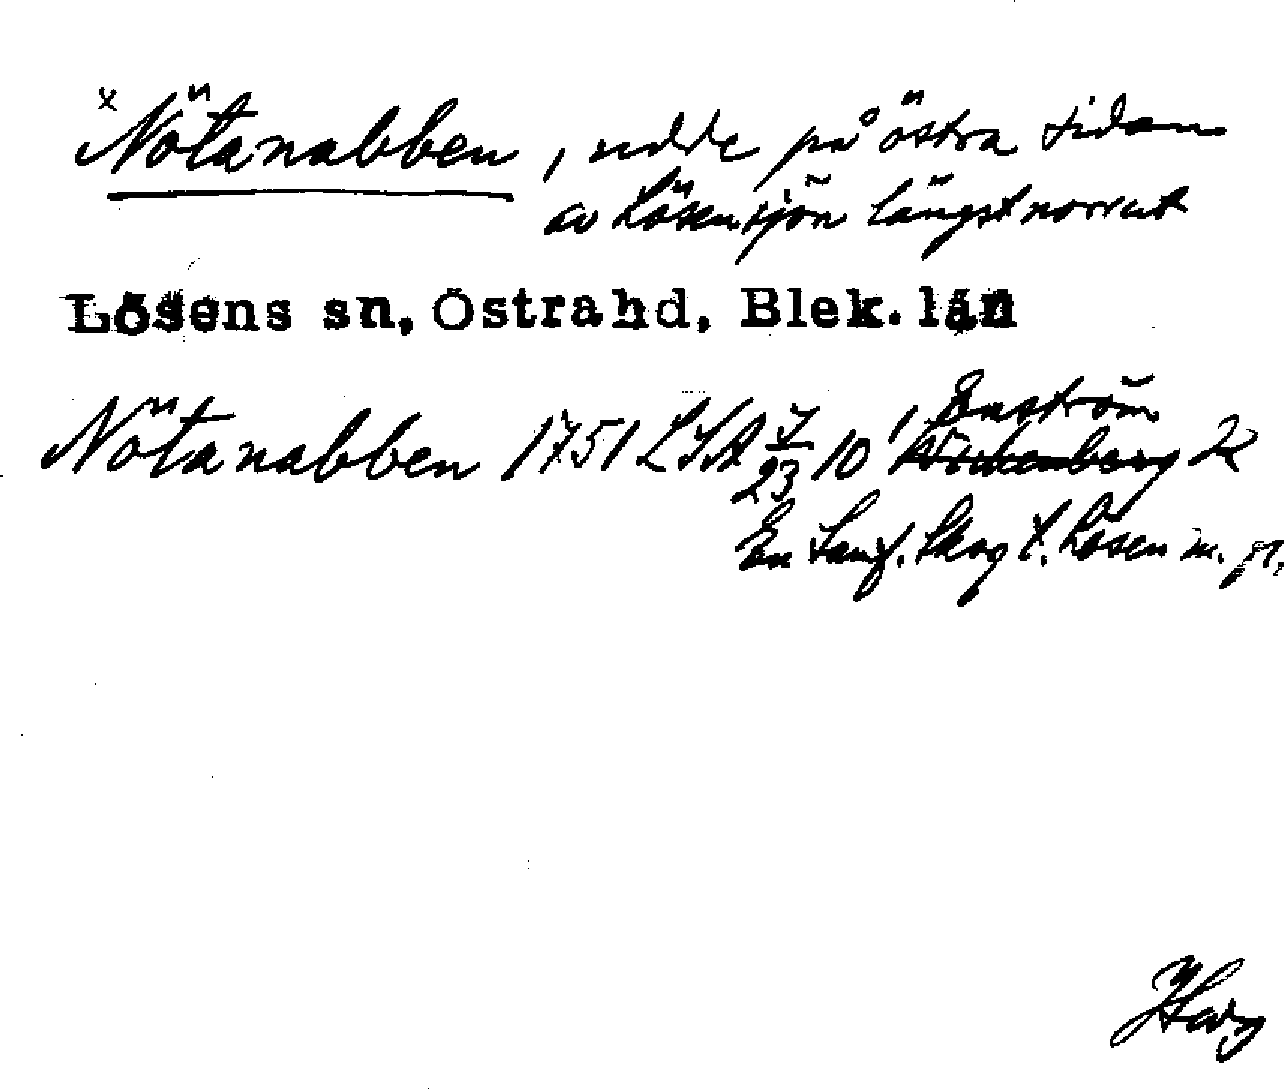 x Nötanabben, udde på östra sidan
av Lösensjön längst norrut
Lösens sn, Östrahd, Blek. län
Nötanabben 1751 LSA J/23 10', Enström
En Saml. Skog t. Lösen m. fl.